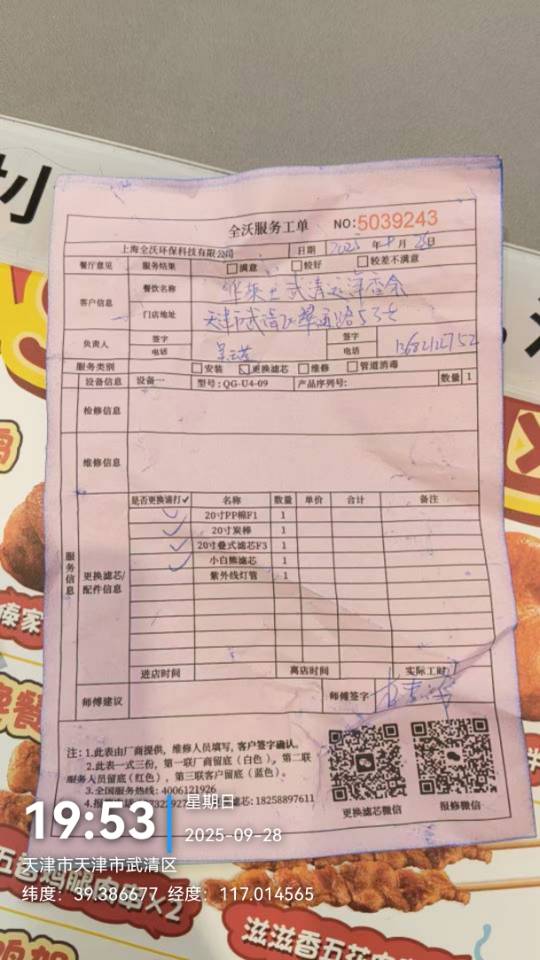 全沃服务工单 NO:5039243
上海全沃环保科技有限公司 日期 2025 年 月 日
餐厅意见 服务结果 满意 较好 较差不满意
客户信息 餐饮名称 华莱士武清
门店地址 天津市武清区翠通路53号
负责人 签字 签字
电话 电话
服务类别 安装 更换滤芯 维修 管道消毒
设备信息 设备一 型号:QG-U4-09 产品序列号: 数量 1
检修信息
维修信息
服务信息
更换滤芯/配件信息
是否更换请打✓ 名称 数量 单价 合计 备注
✓ 20寸PP棉F1 1
✓ 20寸炭棒 1
✓ 20寸叠式滤芯F3 1
✓ 小白熊滤芯 1
紫外线灯管 1
进店时间 离店时间 实际工时
师傅建议 师傅签字
注:1.此表由厂商提供,维修人员填写,客户签字确认。
2.此表一式三份,第一联厂商留底(白色),第二联
服务人员留底(红色),第三联客户留底(蓝色)。
3.全国服务热线:4006121926
滤芯:18258897611
更换滤芯微信 报修微信
19:53 星期日
2025-09-28
天津市天津市武清区
纬度:39.386677 经度:117.014565
滋滋香五花肉